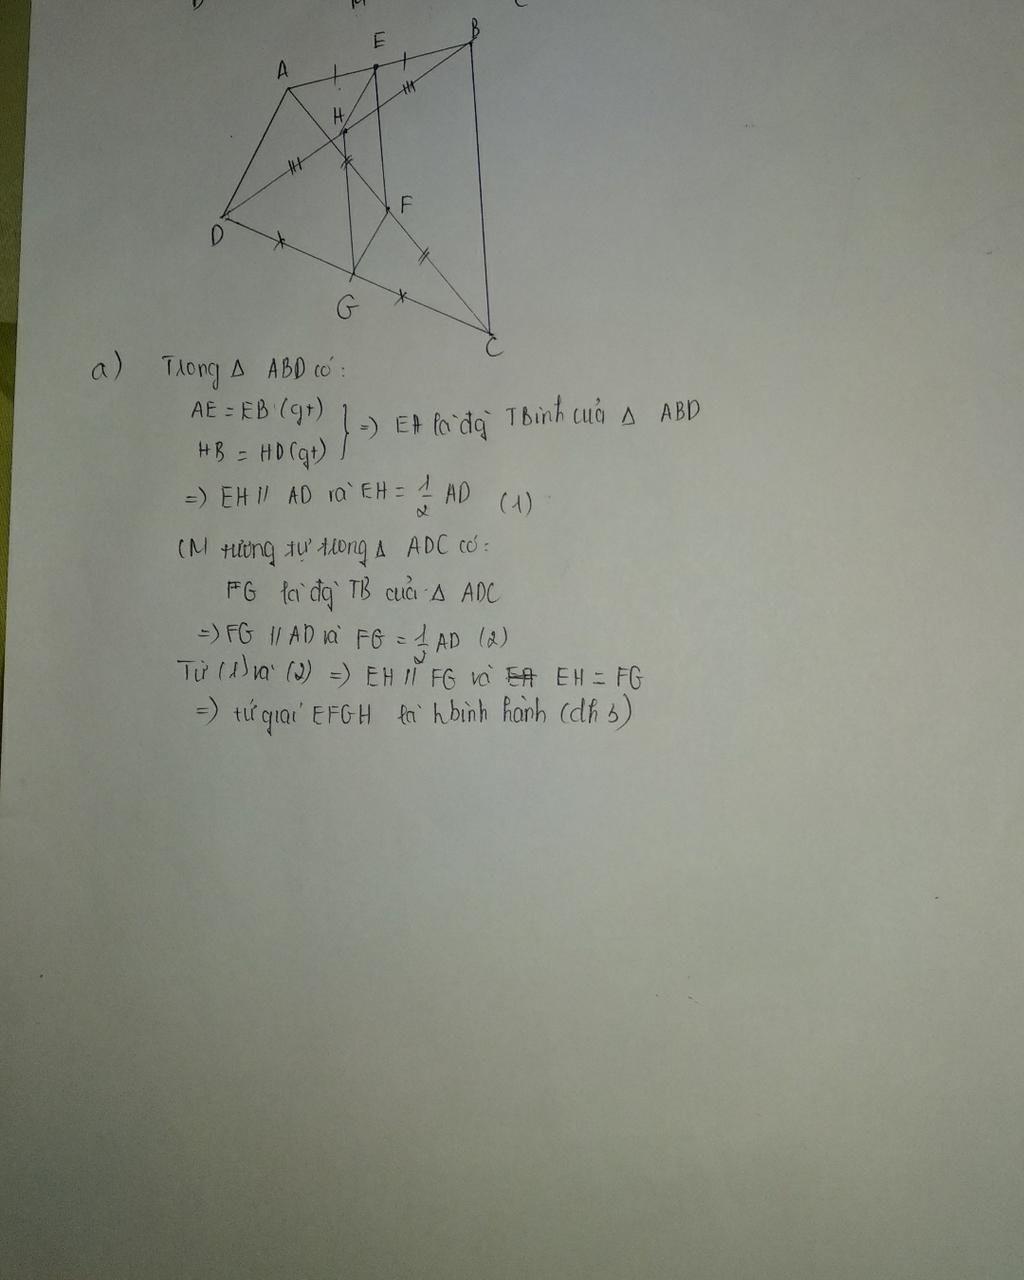 D M C
A E B
H
F
D
G
C
a) Trong Δ ABD có:
AE = EB (gt)
HB = HD (gt) } => EH là đg` TBình của Δ ABD
=> EH // AD và EH = 1/2 AD (1)
CM tương tự trong Δ ADC có:
FG là đg` TB của Δ ADC
=> FG // AD và FG = 1/2 AD (2)
Từ (1) và (2) => EH // FG và EH = FG
=> tứ giác EFGH là hbình hành (dh 3)